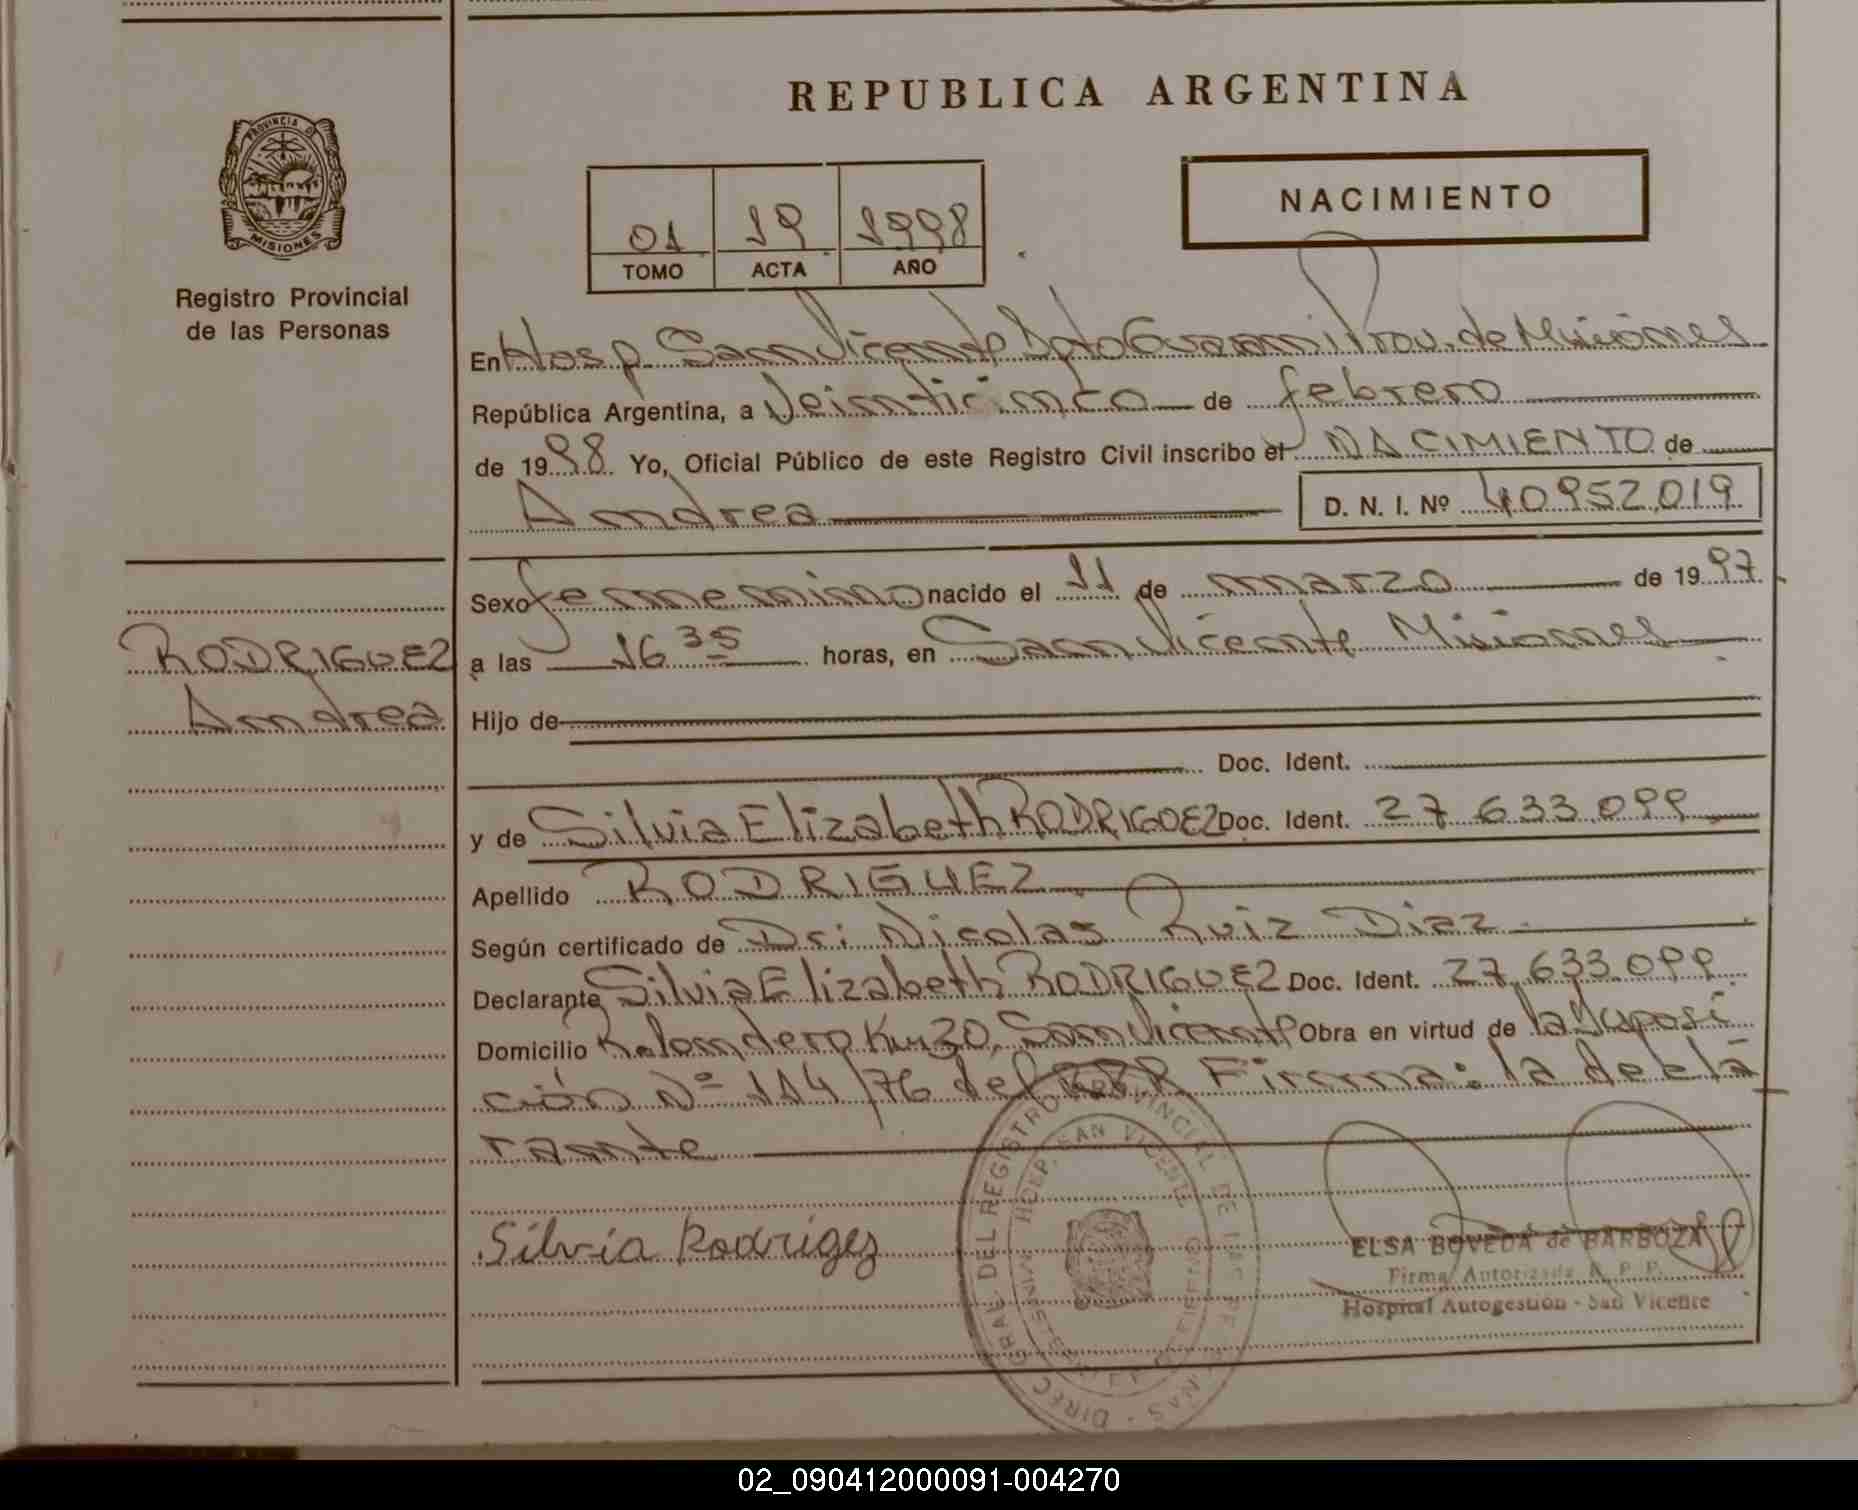 REPUBLICA ARGENTINA
PROVINCIA DE
MISIONES
Registro Provincial
de las Personas
01 19 1998
TOMO ACTA AÑO
NACIMIENTO
En Hosp. San Vicente Dpto Guarani Prov. de Misiones
República Argentina, a Veinticinco de febrero
de 1998 Yo, Oficial Público de este Registro Civil inscribo el NACIMIENTO de
Andrea D. N. I. Nº 40952.019
Sexo femenino nacido el 11 de marzo de 1997
a las 16 35 horas, en San Vicente Misiones
Hijo de
Doc. Ident.
y de Silvia Elizabeth RODRIGUEZ Doc. Ident. 27.633.099
Apellido RODRIGUEZ
Según certificado de Dr: Nicolas Ruiz Diaz
Declarante Silvia Elizabeth RODRIGUEZ Doc. Ident. 27.633.099
Domicilio Km 30, San Vicente Obra en virtud de
ción Nº 114/76 del Firma: la decla
rante
RODRIGUEZ
Andrea
Silvia Rodrigez
SAN VICENTE
ELSA BOVEDA de BARBOZA
Firma Autorizada R. P. P.
Hospital Autogestión - San Vicente
02_090412000091-004270